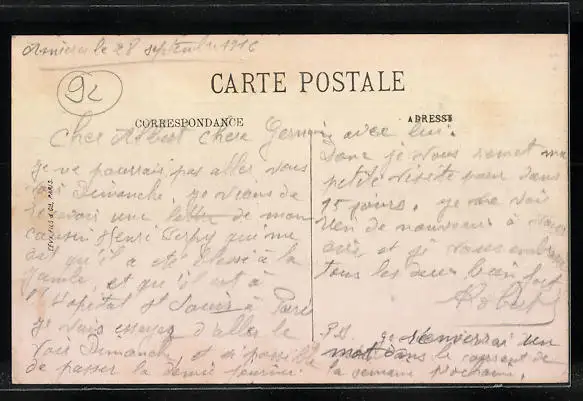 Asnières le 28 septembre 1916
92
CARTE POSTALE
CORRESPONDANCE
ADRESSE
LEVY FILS & CIE, PARIS
Cher Albert chere Germain
je ne pourrais pas aller vous
voir Dimanche, je viens de
recevoir une lettre de mon
cousin Henri qui me
dit qu'il a eté blessé à la
jambe, et qu'il est à
l'Hopital St Louis à Paris
je vais essayez d'aller le
voir Dimanche, et si possible
de passer la demie journée
avec lui.
Donc je vous remet ma
petite visite pour dans
15 jours, je ne vois
rien de nouveau à vous
dire et je vous embrasse
tous les deux bien fort
Robert
P.S. je enverrai un
mot dans le courant de
la semaine prochaine.